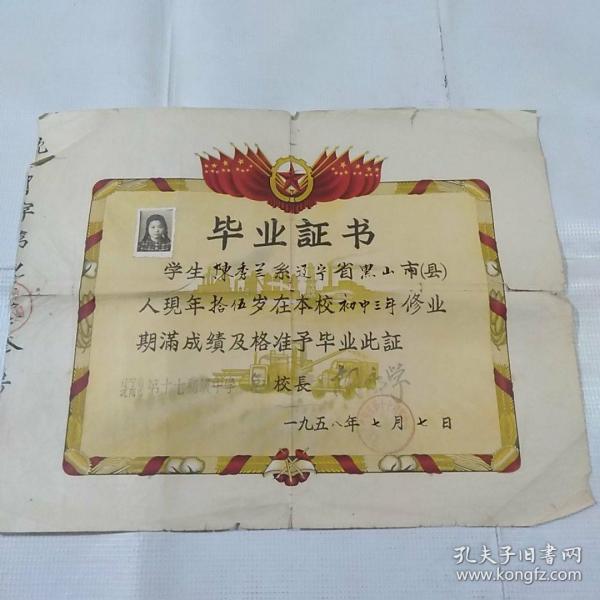 毕业証书
学生陳秀兰系辽宁省黑山市(县)
人現年拾伍岁在本校初中三年修业
期滿成績及格准予毕业此証
第十七初級中学 校長
一九五八年七月七日
孔夫子旧书网
www.kongfz.com